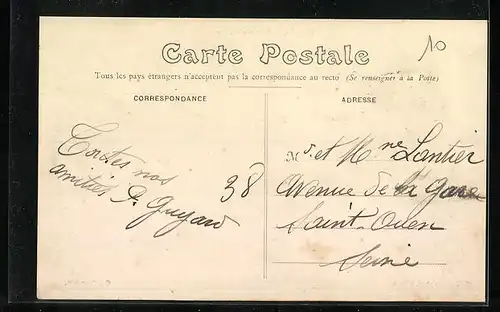 10
Carte Postale
Tous les pays étrangers n'acceptent pas la correspondance au recto (Se renseigner à la Poste)
CORRESPONDANCE
Toutes nos
amitiés P. Guyard
38
ADRESSE
Mr. et Mme Lantier
Avenue de la Gare
Saint-Ouen
Seine